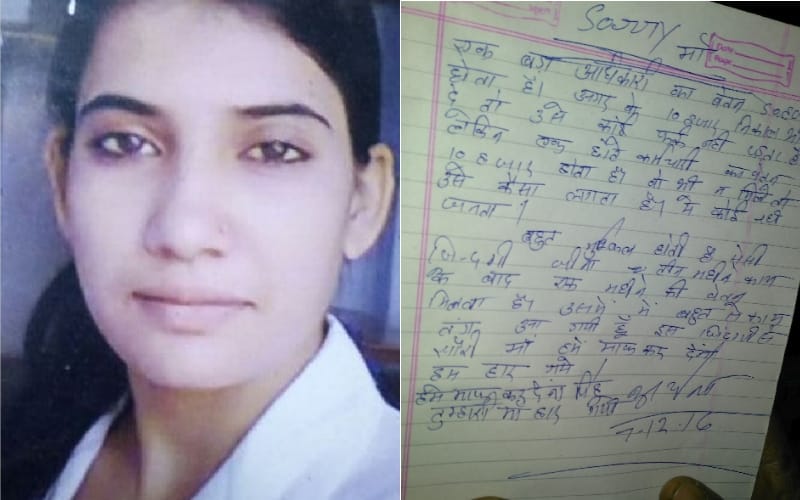 Sorry माँ
एक बड़ा अधिकारी का वेतन
होता है। अगर के 10 हजार निकाल
दे तो उसे कोई फर्क नही पड़ता है
लेकिन एक छोटे कर्मचारी का वेतन
10 हजार होता है। वो भी न मिले तो
उसे कैसा लगता है। ये कोई नही
जनता।
बहुत मुश्किल होती है ऐसी
जिन्दगी जीना तीन महीने काम
के बाद एक महीने की वेतन
मिलता है। उसमें में बहुत से काम
तंग आ गयी हूँ इस
सॉरी माँ हमें माफ कर देना
हम हार गये।
हमे माफ कर देना
तुम्हारी माँ हार गयी
7-12-16